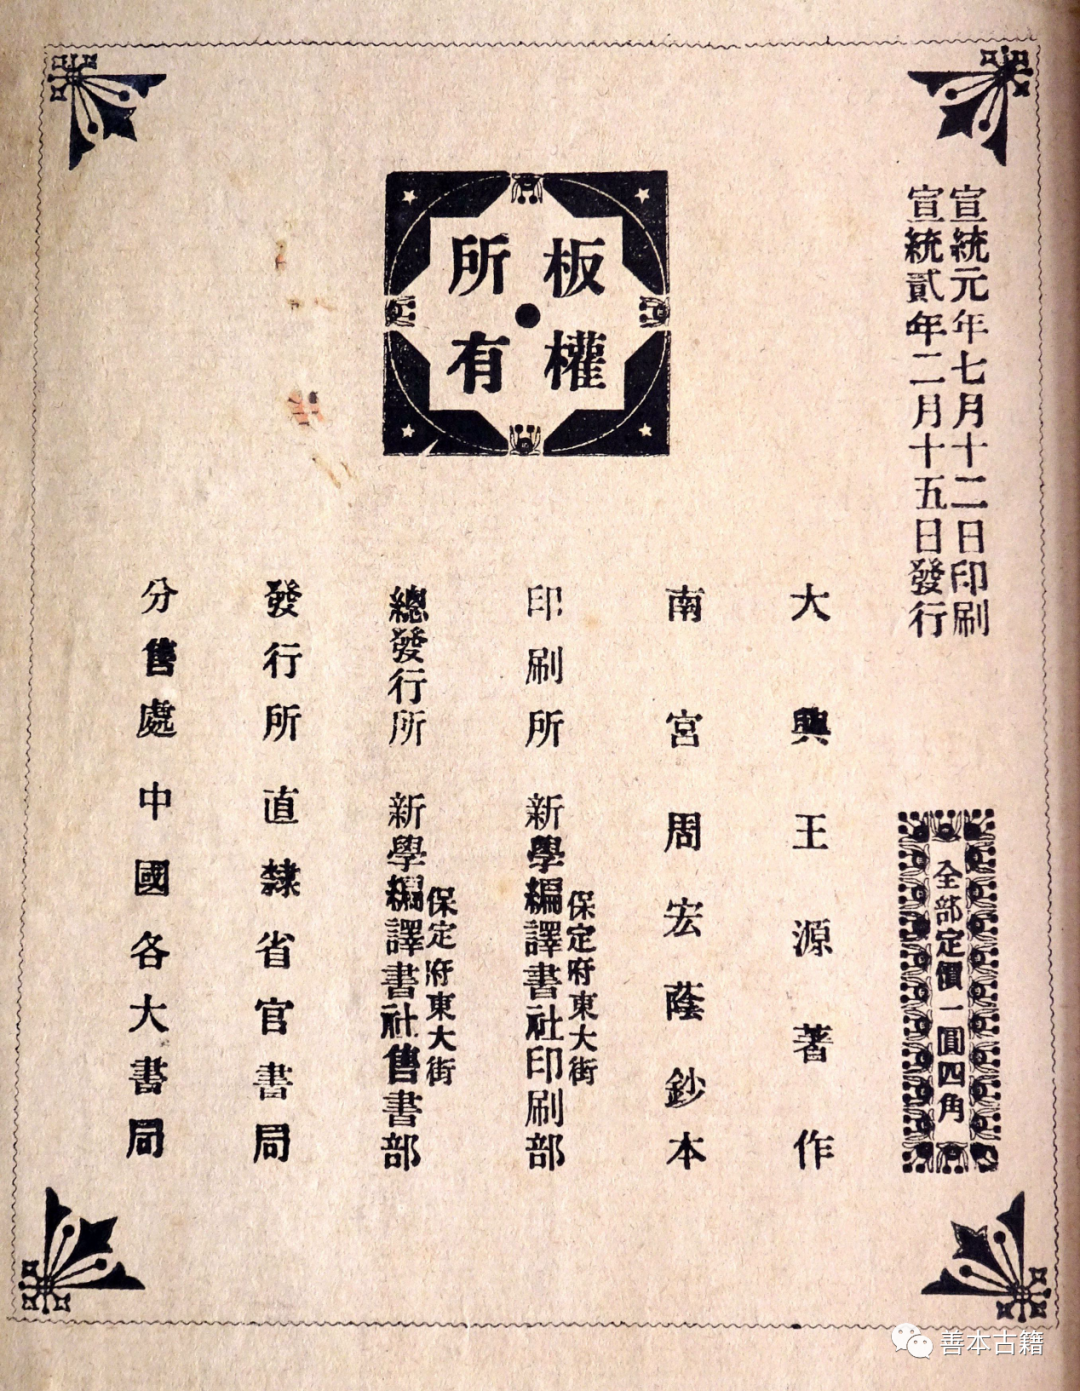 宣統元年七月十二日印刷
宣統貳年二月十五日發行
全部定價一圓四角
板權
所有
大興王源著作
南宮周宏蔭鈔本
保定府東大街
印刷所 新學編譯書社印刷部
保定府東大街
總發行所 新學編譯書社售書部
發行所直隸省官書局
分售處中國各大書局
善本古籍